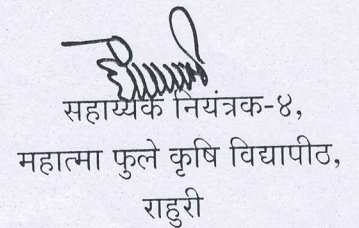 सहाय्यक नियंत्रक-४,
महात्मा फुले कृषि विद्यापीठ,
राहुरी